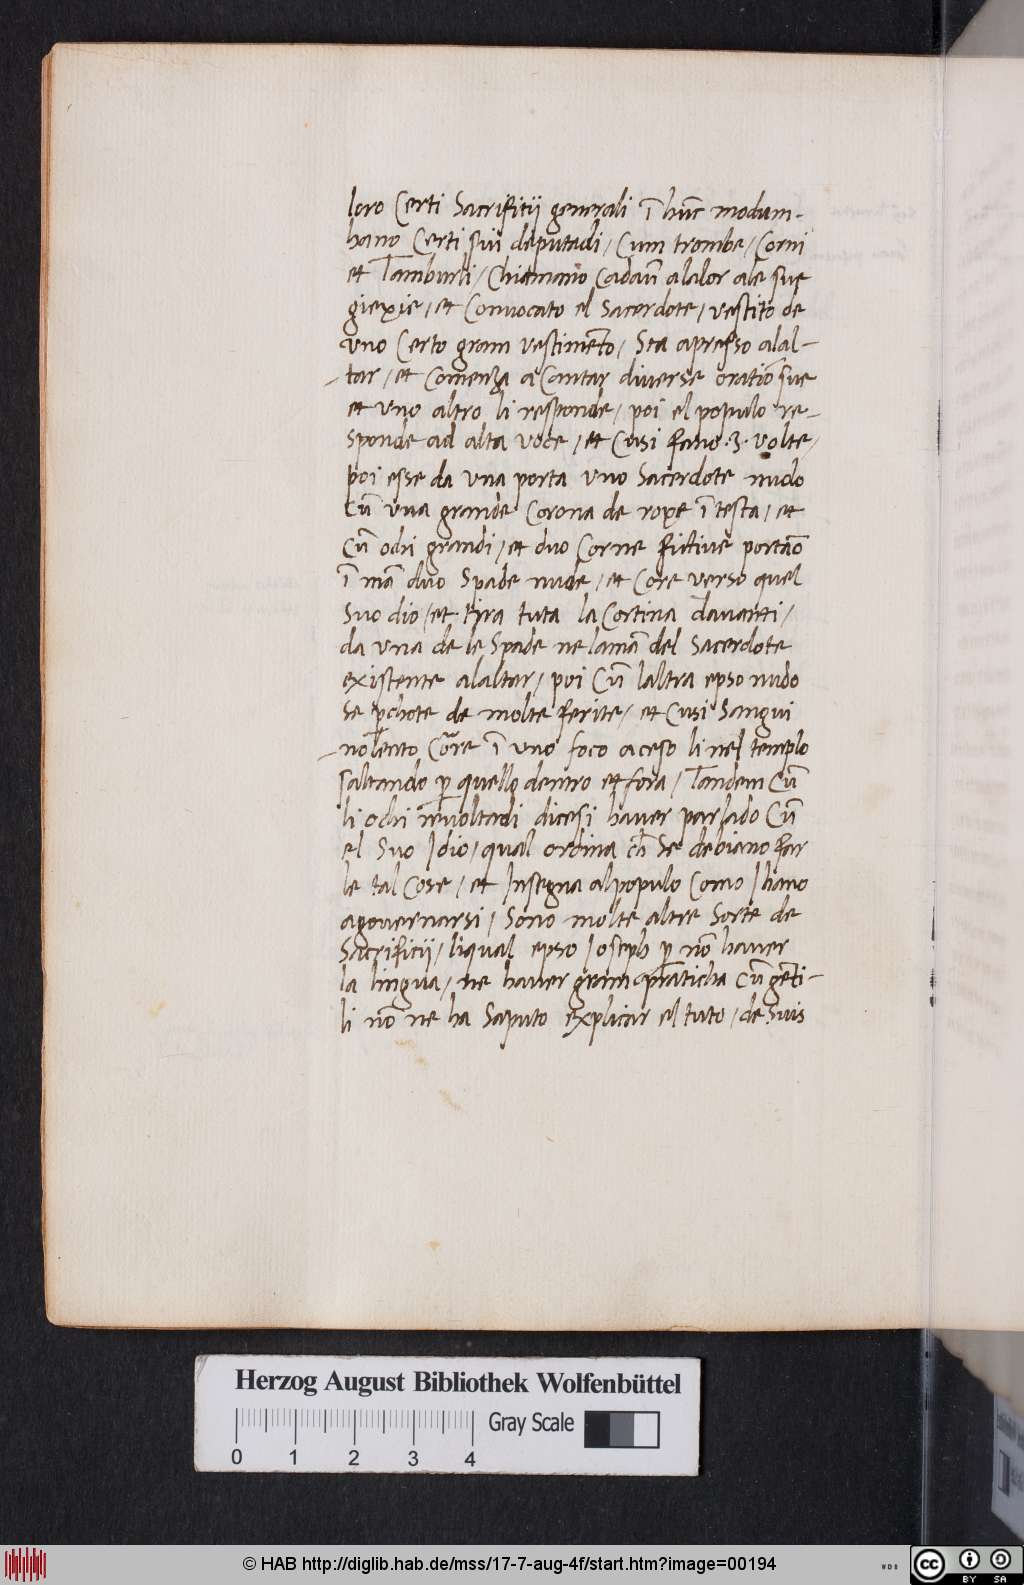 loro Certi Sacrifitij generali ī hūc modum·
hano Certi sui deputadi / Cum trombe / Corni
et Tamburli / Chiamano Cadaũ alalor ale sue
giexie / et Conuocato el Sacerdote / vestito de
vno Certo gram vestimẽto / Sta apresso alal-
-tar / et Comenza a Cantar diuerse oratiõ sue
et vno altro li responde / poi el populo re-
sponde ad alta voce / et Cusi fano ·3· volte /
poi esse da vna porta vno Sacerdote nudo
Cũ vna grande Corona de roxe ī testa / et
Cũ ochi grandi / et duo Corne fictiue portão
ī mã duo Spade nude / et Core verso quel
Suo dio / et tira tuta la Cortina dauanti /
da vna de le Spade ne lamã del Sacerdote
existente alaltar / poi Cũ laltra epso nudo
Se pchote de molte ferite / et Cusi Sangui
-nolento Core ī vno foco aceso li nel templo
saltando p quello dentro et fora / Tandem Cũ
li ochi reuoltadi dicesi hauer parlado Cũ
el Suo Idio / qual ordina ch̄ Se debiano far
le tal Cose / et Insegna alpopulo Como Ihano
agouernarsi / Sono molte altre Sorte de
Sacrifitij / liqual epso Ioseph p nõ hauer
la lingua / ne hauer gram praticha Cũ gẽti-
li nõ ne ha Saputo explicar el tuto / de Suis
Herzog August Bibliothek Wolfenbüttel
Gray Scale
0 1 2 3 4
© HAB http://diglib.hab.de/mss/17-7-aug-4f/start.htm?image=00194
WDB
cc BY SA